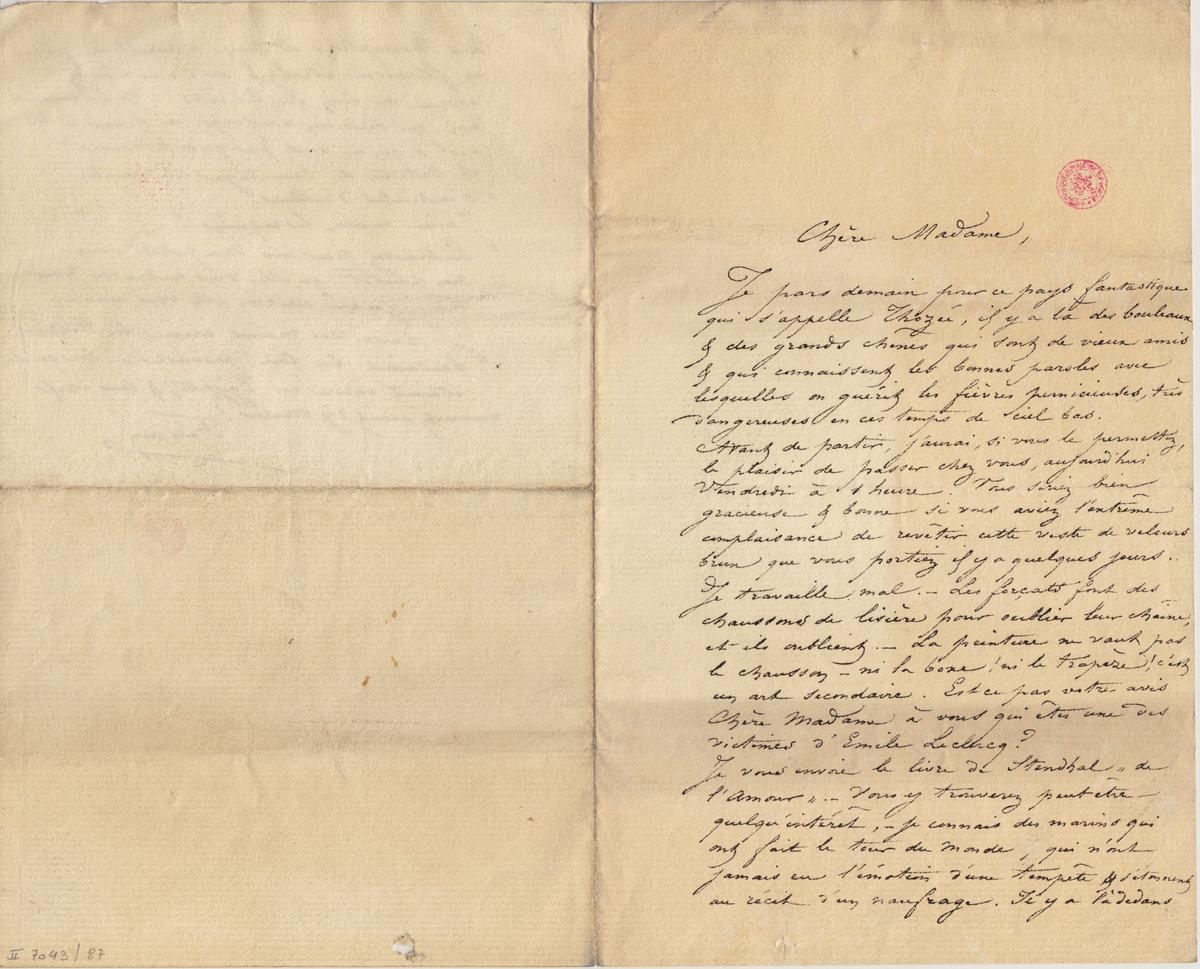 Chère Madame,
Je pars demain pour ce pays fantastique
qui s'appelle Thozée, il y a là des bouleaux
& des grands chênes qui sont de vieux amis
& qui connaissent les bonnes paroles avec
lesquelles on guérit les fièvres pernicieuses, très
dangereuses en ces temps de ciel bas.
Avant de partir, j'aurai, si vous le permettez,
le plaisir de passer chez vous, aujourd'hui
Vendredi à 1 heure. Vous seriez bien
gracieuse & bonne si vous aviez l'extrême
complaisance de revêtir cette veste de velours
brun que vous portiez il y a quelques jours..
Je travaille mal. – Les forçats font des
chaussons de lisière pour oublier leur chaîne,
et ils oublient. – La peinture ne vaut pas
le chausson – ni la boxe! ni le trapèze! c'est
un art secondaire. Est ce pas votre avis
Chère Madame à vous qui êtes une des
victimes d'Emile Leclercq?
Je vous envoie le livre de Stendhal „ de
l'Amour „ – Vous y trouverez peut être
quelqu'intérêt, – je connais des marins qui
ont fait le tour du monde, qui n'ont
jamais eu l'émotion d'une tempête & s'étonnent
au récit d'un naufrage. Il y a là dedans
II 7043 / 87